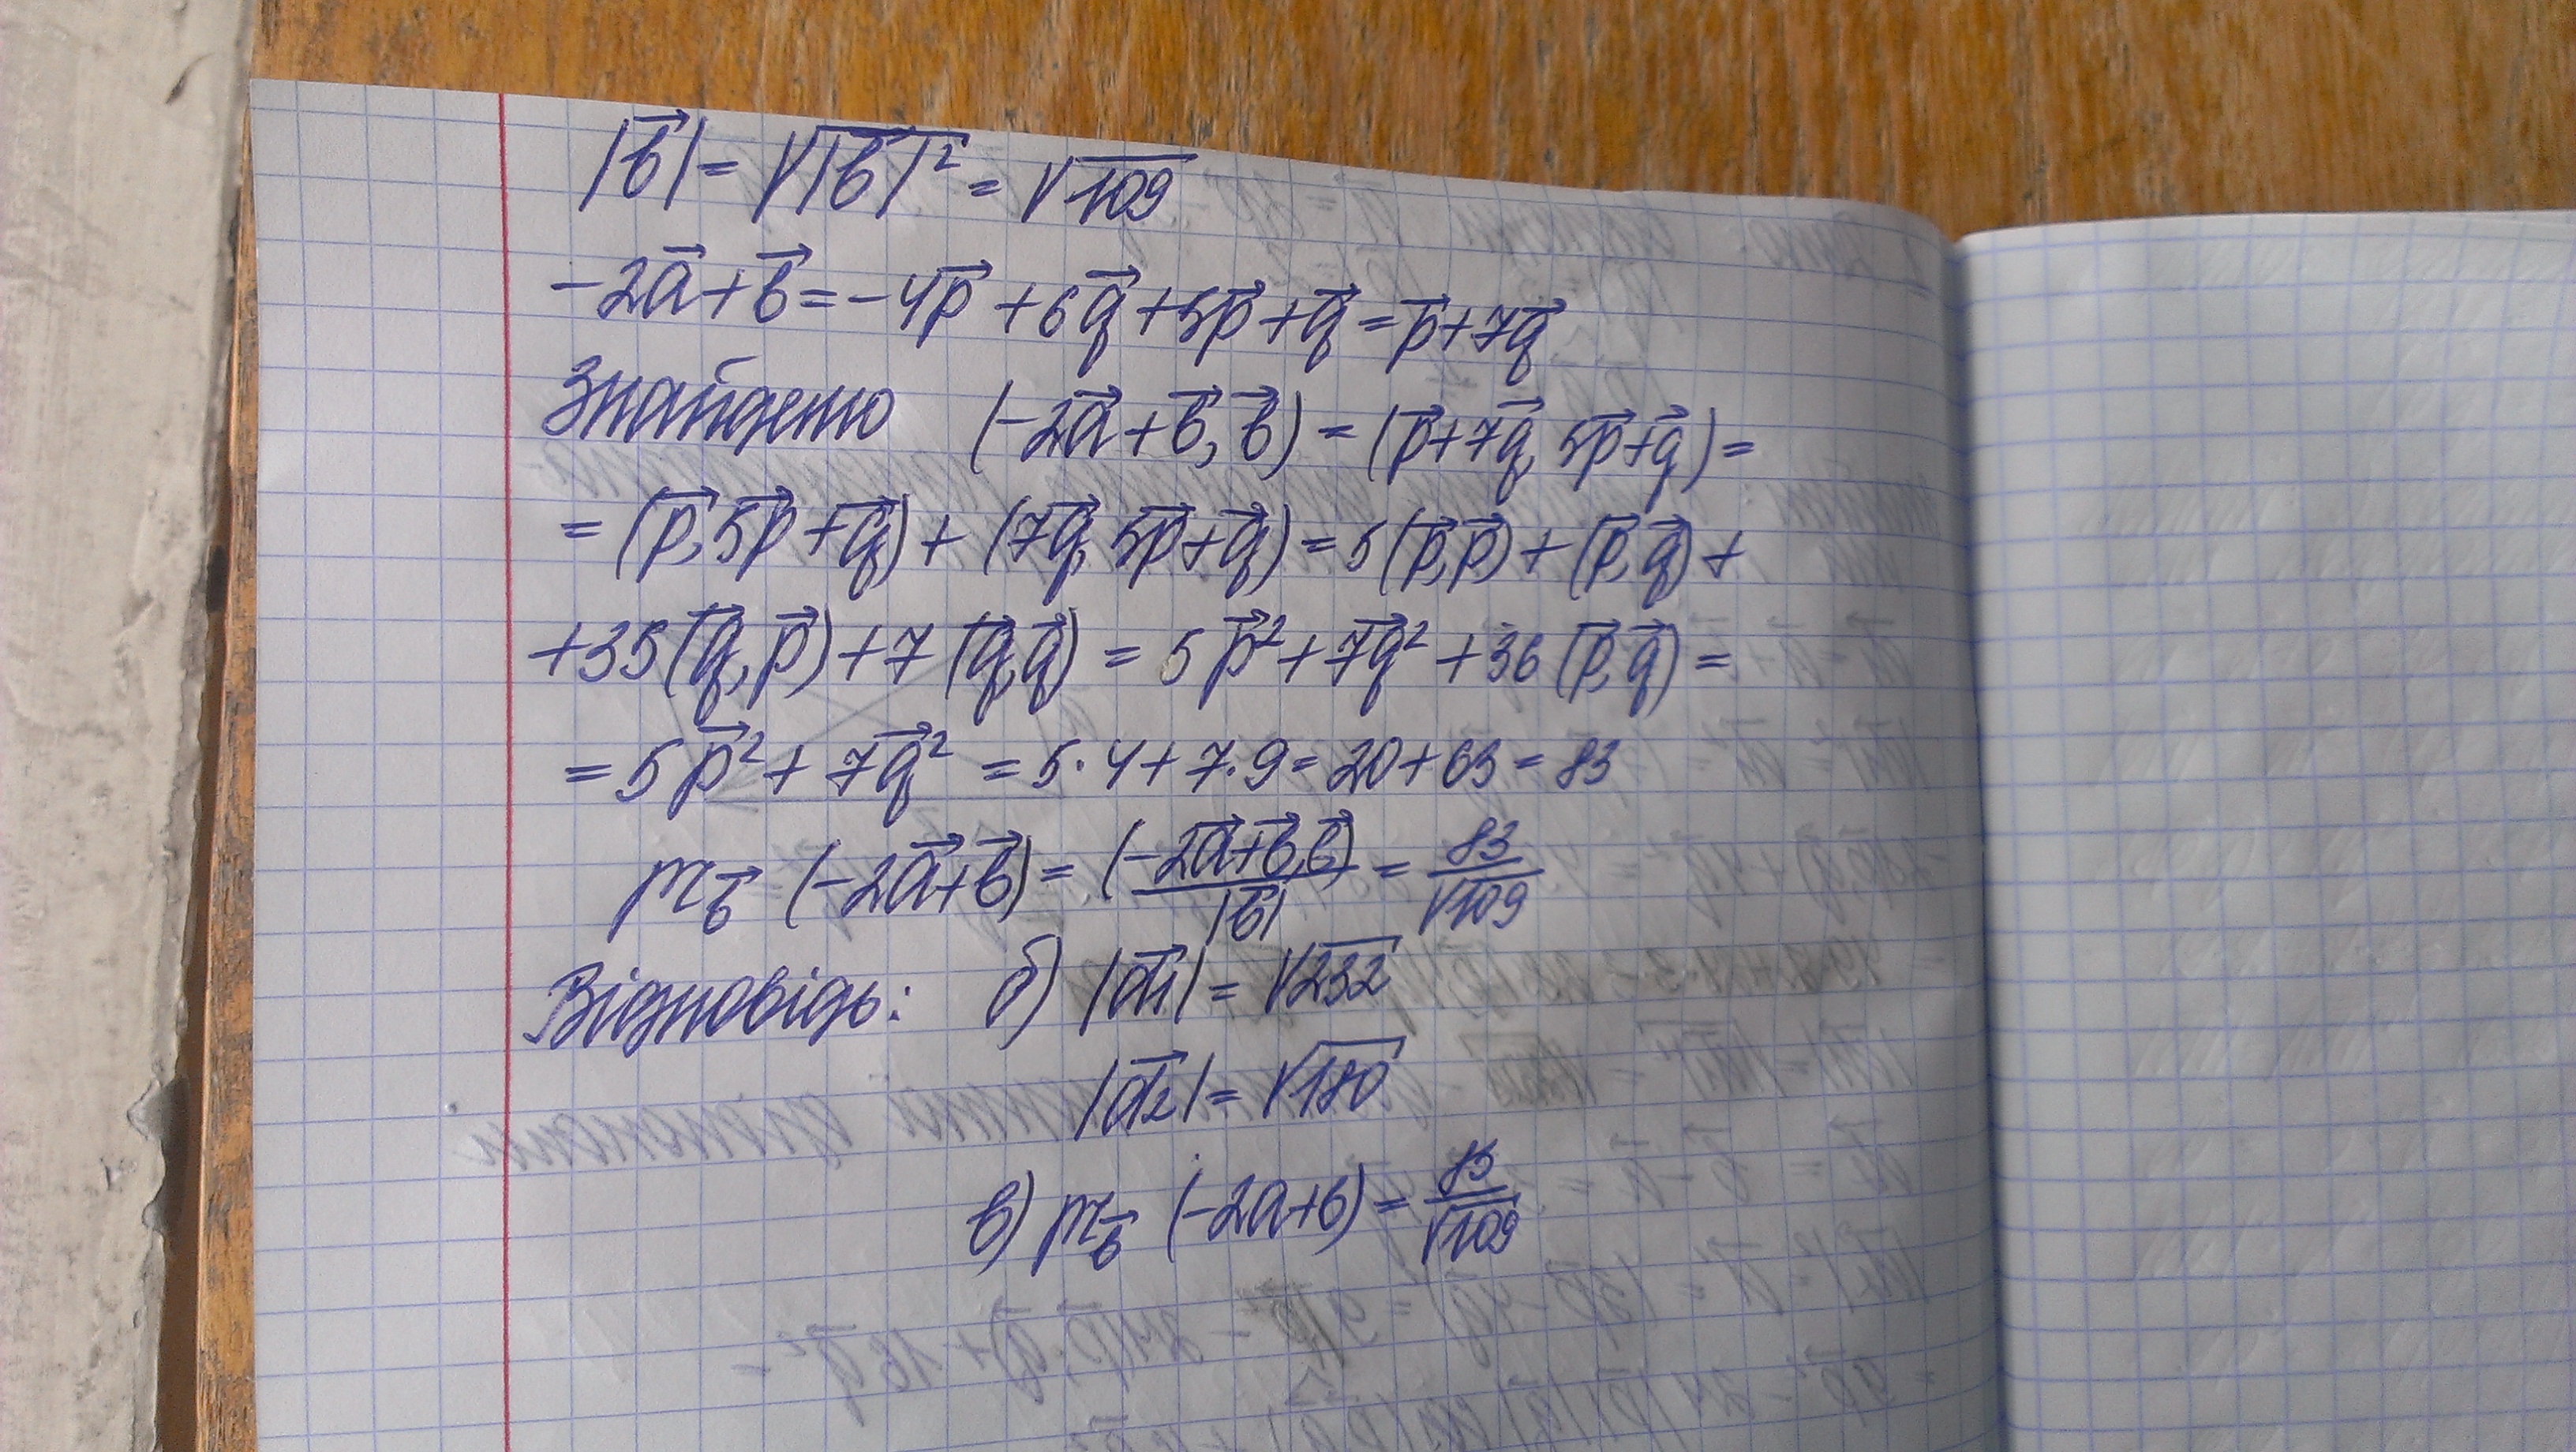 |b⃗| = √|b⃗|² = √109
−2a⃗ + b⃗ = −4p⃗ + 6q⃗ + 5p⃗ + q⃗ = p⃗ + 7q⃗
Знайдемо (−2a⃗ + b⃗, b⃗) = (p⃗ + 7q⃗, 5p⃗ + q⃗) =
= (p⃗, 5p⃗ + q⃗) + (7q⃗, 5p⃗ + q⃗) = 5(p⃗, p⃗) + (p⃗, q⃗) +
+ 35(q⃗, p⃗) + 7(q⃗, q⃗) = 5p⃗² + 7q⃗² + 36(p⃗, q⃗) =
= 5p⃗² + 7q⃗² = 5·4 + 7·9 = 20 + 63 = 83
пр_b⃗ (−2a⃗ + b⃗) = (−2a⃗ + b⃗, b⃗) / |b⃗| = 83/√109
Відповідь: б) |d⃗₁| = √232
|d⃗₂| = √180
в) пр_b⃗ (−2a + b) = 83/√109